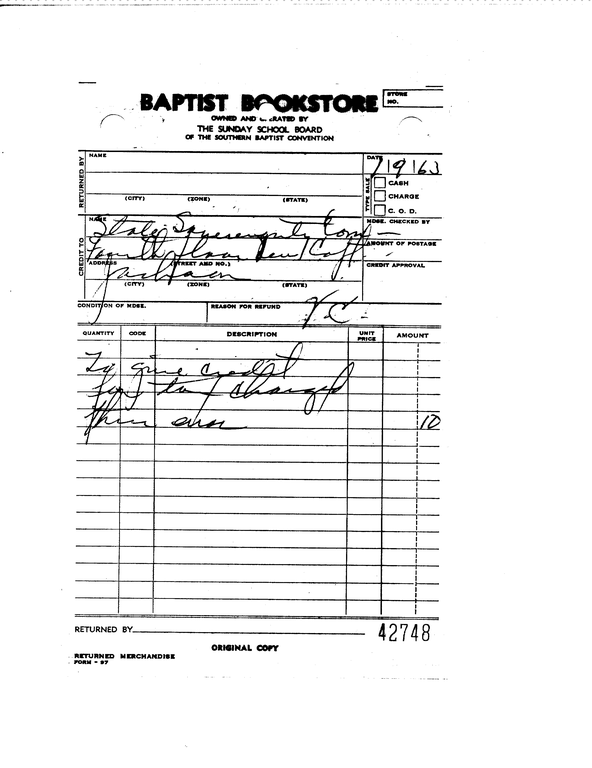 BAPTIST BOOKSTORE
STORE NO.
OWNED AND OPERATED BY
THE SUNDAY SCHOOL BOARD
OF THE SOUTHERN BAPTIST CONVENTION
RETURNED BY
NAME
(CITY) (ZONE) (STATE)
DATE
TYPE SALE
CASH
CHARGE
C. O. D.
CREDIT TO
NAME State Sovereignty Com
MDSE. CHECKED BY
Fourth floor New Cap
AMOUNT OF POSTAGE
ADDRESS (STREET AND NO.)
CREDIT APPROVAL
Jackson
(CITY) (ZONE) (STATE)
CONDITION OF MDSE. REASON FOR REFUND
QUANTITY CODE DESCRIPTION UNIT PRICE AMOUNT
To give credit
for tax charged
thru error 12
RETURNED BY
42748
ORIGINAL COPY
RETURNED MERCHANDISE
FORM - 97